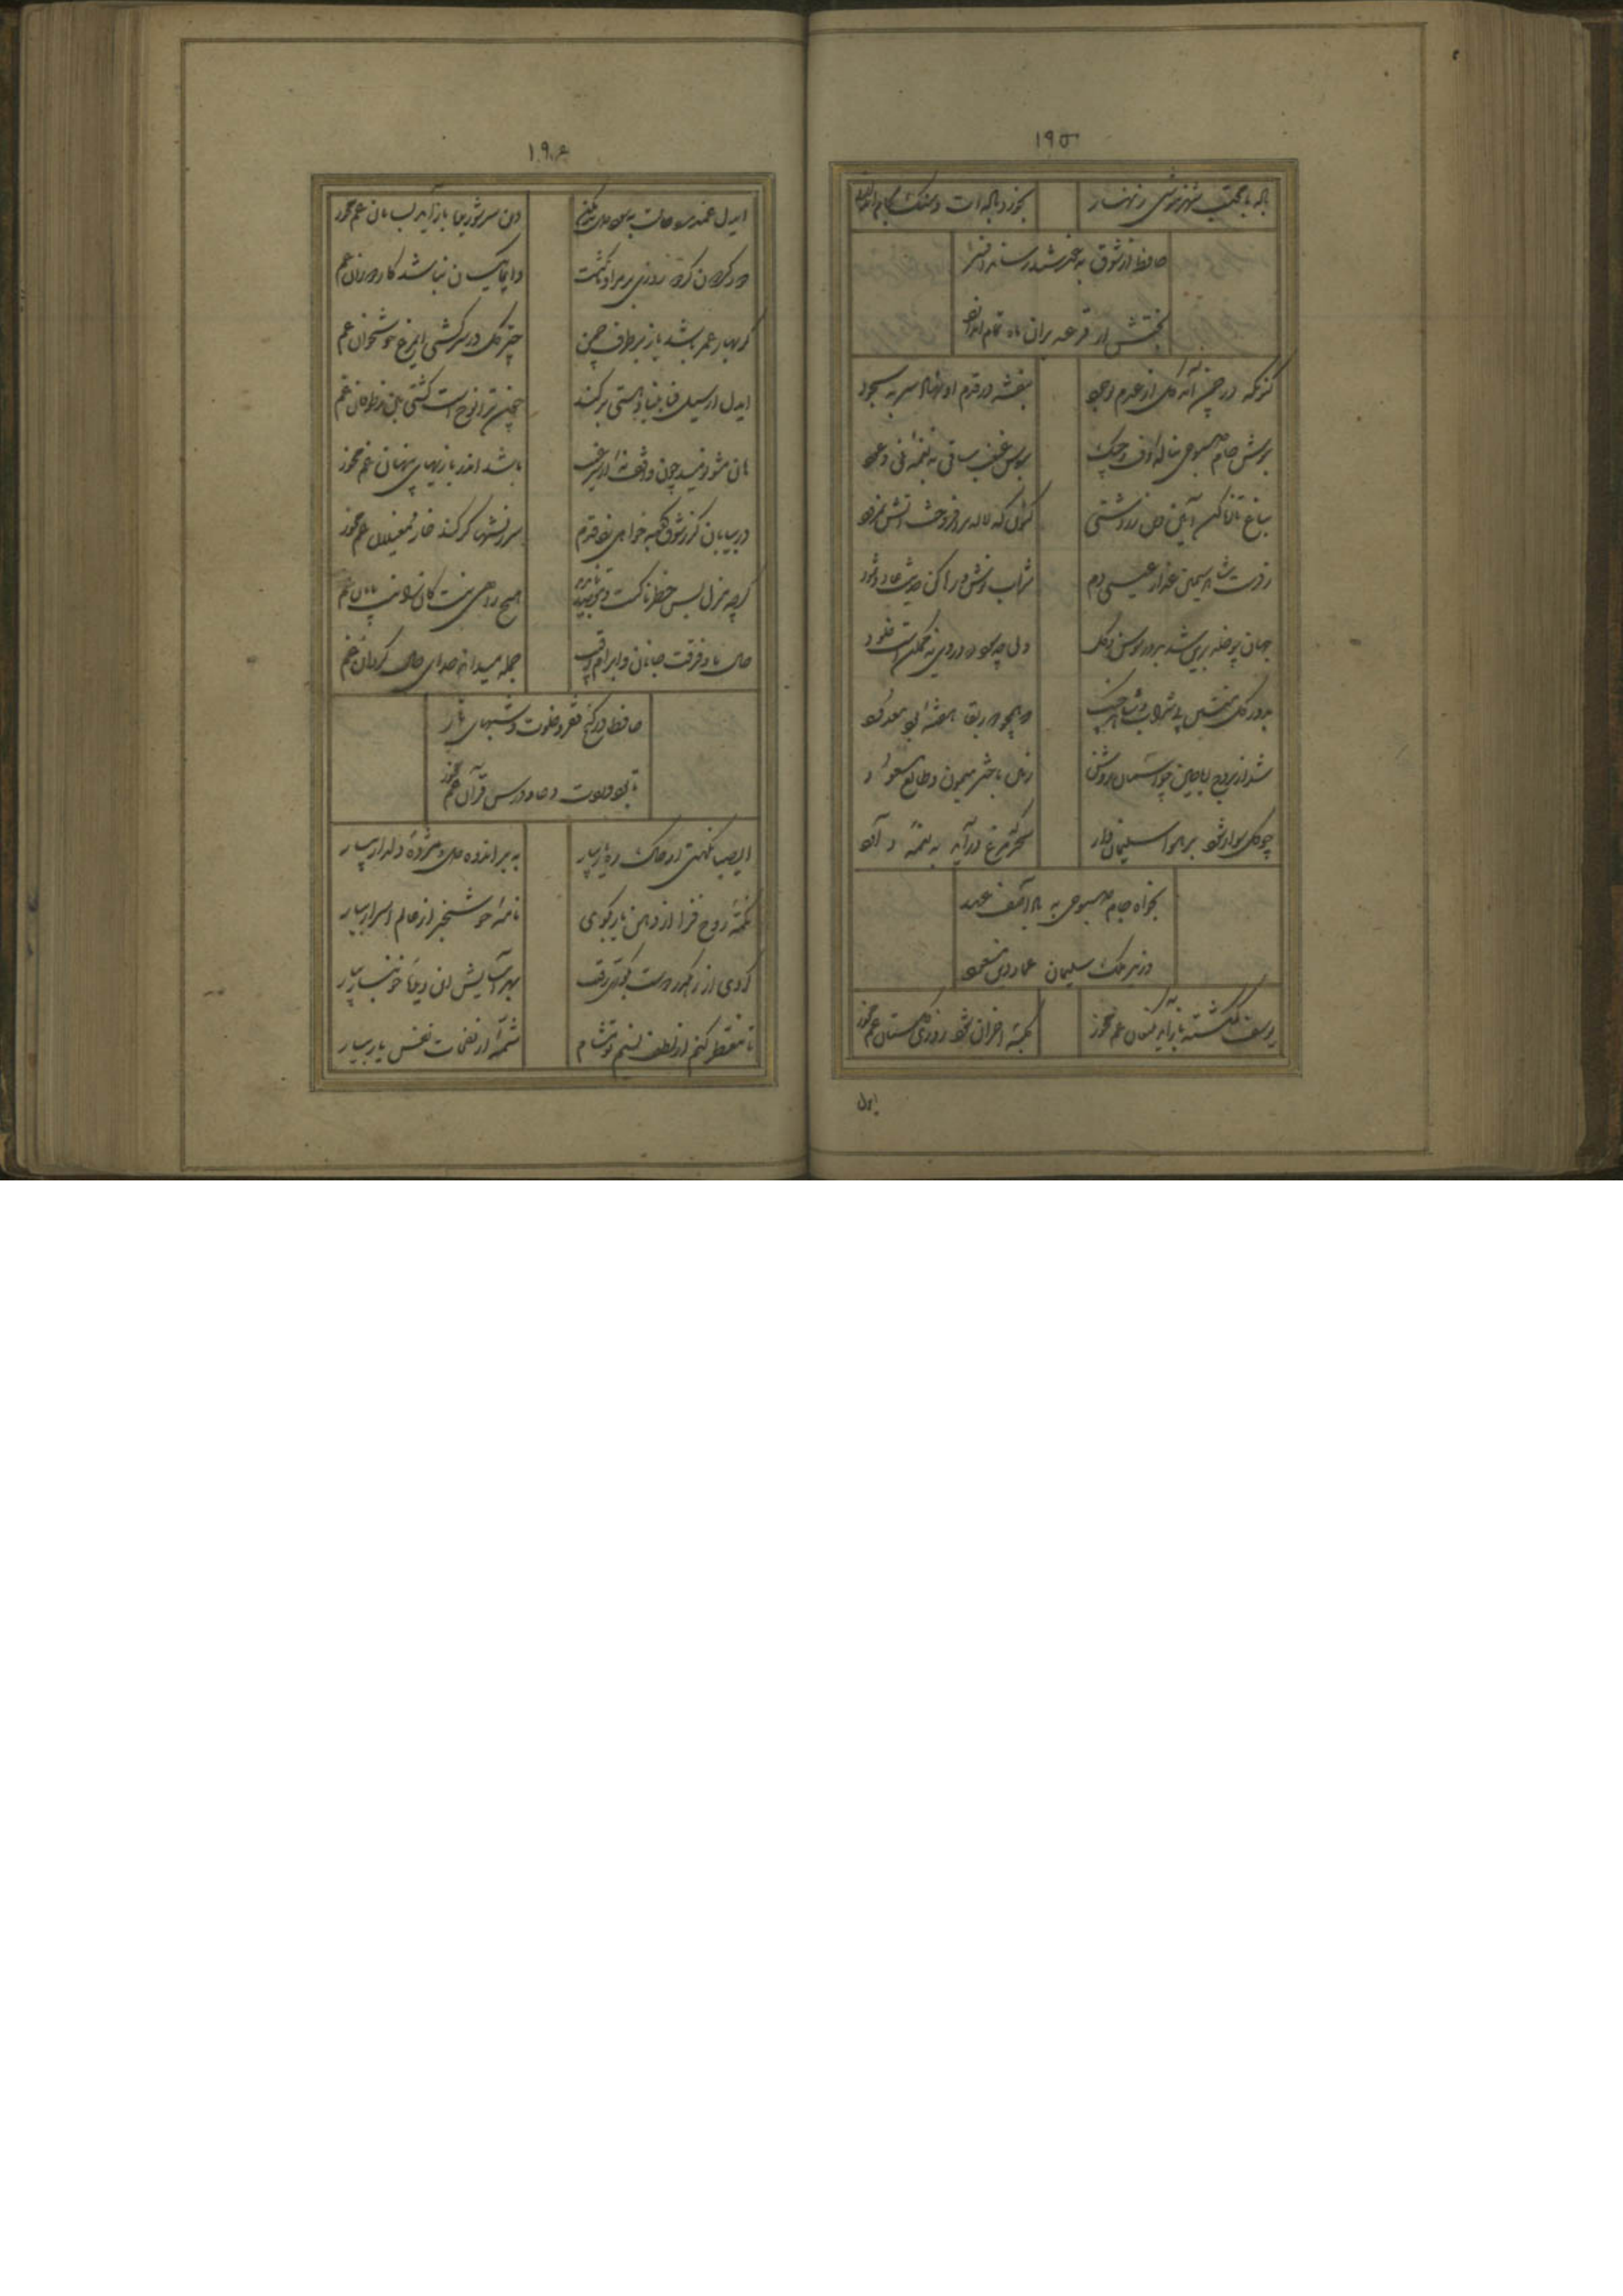 ۱۹۵
باده با محتسب شهر ننوشی زنهار
بخورد باده ات و سنگ بجام اندازد
حافظا
به خورشید رساند
بختش ار قرعه بران ماه تمام اندازد
کنونکه در چمن آمد گل از عدم بوجود
بنفشه در قدم او نهاد سر به سجود
بنوش جام صبوحی بناله دف و چنگ
ببوس غبغب ساقی به نغمه نی و عود
بباغ تازه کن آیین دین زردشتی
کنون که لاله برافروخت آتش نمرود
ز دست شاهد سیمین عذار عیسی دم
شراب نوش و رها کن حدیث عاد و ثمود
جهان چو خلد برین شد بدور سوسن و گل
ولی چه سود که در وی نه ممکنست خلود
بدور گل منشین بی شراب و شاهد و چنگ
که همچو دور بقا هفته بود معدود
شد از بروج ریاحین چو آسمان روشن
زمین باختر میمون و طالع مسعود
چو گل سوار شود بر هوا سلیمان وار
سحر که مرغ درآید به نغمه داود
بخواه جام صبوحی به یاد آصف عهد
وزیر ملک سلیمان عماد دین محمود
یوسف گمگشته باز آید بکنعان غم مخور
کلبه احزان شود روزی گلستان غم مخور
ایدل
۱۹۶
ایدل غمدیده حالت به شود دل بد مکن
وین سر شوریده باز آید بسامان غم مخور
دور گردون گر دو روزی بر مراد ما نگشت
دایما یکسان نباشد کار دوران غم
گر بهار عمر باشد باز بر طرف چمن
چتر گل در سر کشی ای مرغ خوشخوان غم
ایدل ار سیل فنا بنیاد هستی بر کند
چون ترا نوح است کشتی بان ز طوفان غم
هان مشو نومید چون واقف نه از سر غیب
باشد اندر پرده بازیهای پنهان غم مخور
در بیابان گر ز شوق کعبه خواهی زد قدم
سرزنشها گر کند خار مغیلان غم مخور
گرچه منزل بس خطرناکست و مقصد
هیچ راهی نیست کانرا نیست پایان غم
حال ما و فرقت جانان و ابرام رقیب
جمله میداند خدای حال گردان غم
حافظا در کنج فقر و خلوت و شبهای تار
تا بود وردت دعا و درس قرآن غم مخور
ای صبا نکهتی از خاک ره یار بیار
به بر اندوه دل و مژده دلدار بیار
نکته روح فزا از دهن یار بگوی
نامه خوش خبر از عالم اسرار بیار
گردی از رهگذر دوست بکوری رقیب
بهر آسایش این دیده خونبار بیار
تا معطر کنم از لطف نسیم تو مشام
شمه از نفحات نفس یار بیار